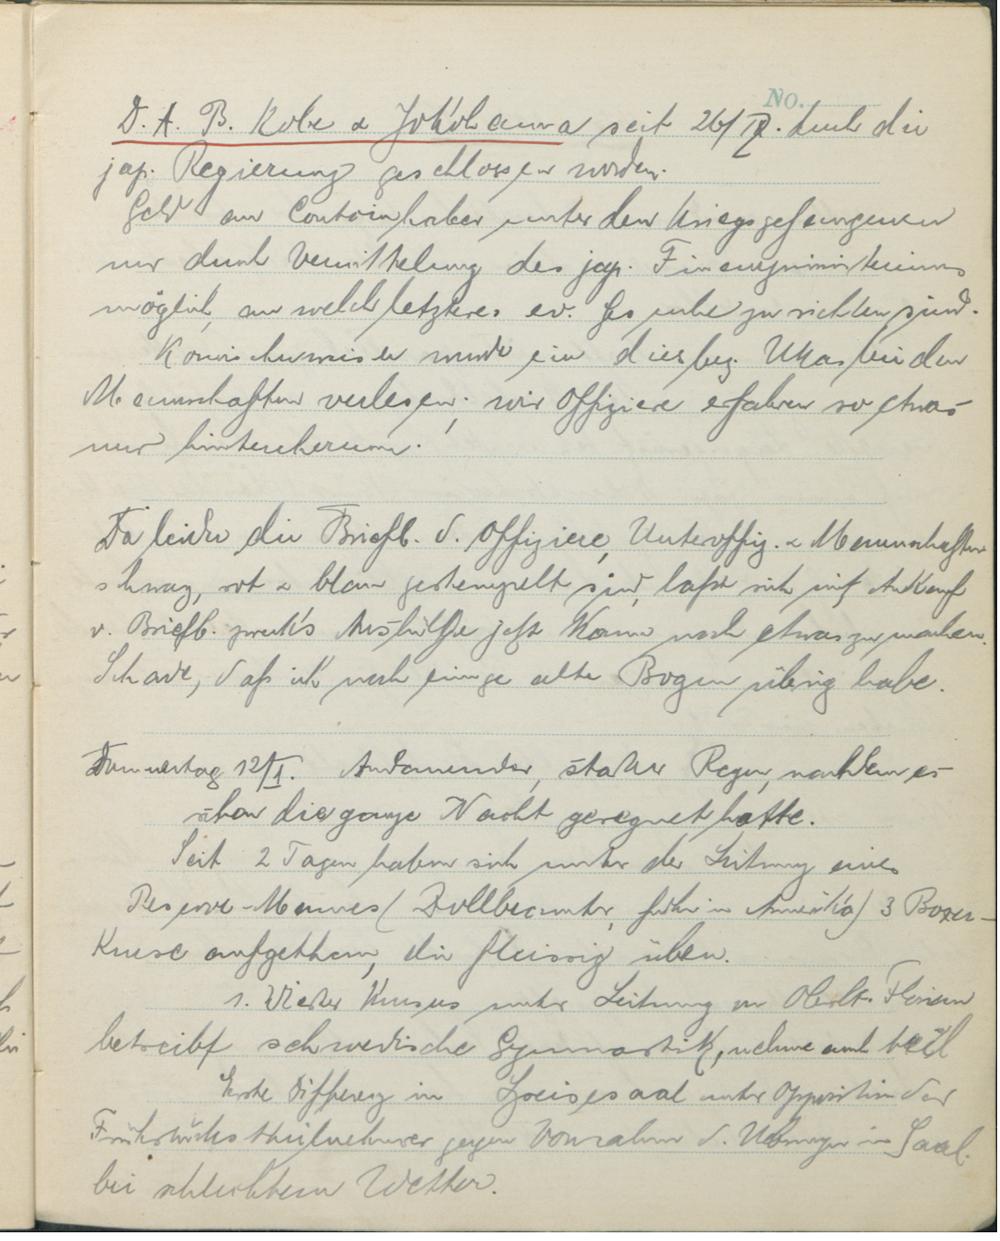 No.
D. A. B. Kobe & Jokohama seit 26/IX. durch die
jap. Regierung geschlossen worden.
Geld an Contoinhaber unter den Kriegsgefangenen
nur durch Vermittelung des jap. Finanzministeriums
möglich, an welch letzteres ev. Gesuche zu richten sind.
Komischerweise wurde ein diesbez. Ukas bei den
Mannschaften verlesen; wir Offiziere erfahren so etwas
nur hintenherum.
Da leider die Briefb. d. Offiziere, Unteroffiz. & Mannschaften
schwarz, rot & blau gestempelt sind, läßt sich mit Ankauf
v. Briefb. zwecks Aushülfe jetzt kaum noch etwas zu machen.
Schade, daß ich noch einige alte Bogen übrig habe.
Donnerstag 12/I. Andauernder, starker Regen, nachdem es
schon die ganze Nacht geregnet hatte.
Seit 2 Tagen haben sich unter der Leitung eines
Reserve-Mannes (Zollbeamter, früher in Amerika) 3 Boxer-
Kurse aufgethan, die fleissig üben.
1. Kursus unter Leitung von Oberlt.
betreibt schwedische Gymnastik, nehme auch teil
Erste Differenz im Speisesaal unter Opposition der
Frühstücksteilnehmer gegen Vornahme d. Übungen im Saal
bei schlechtem Wetter.